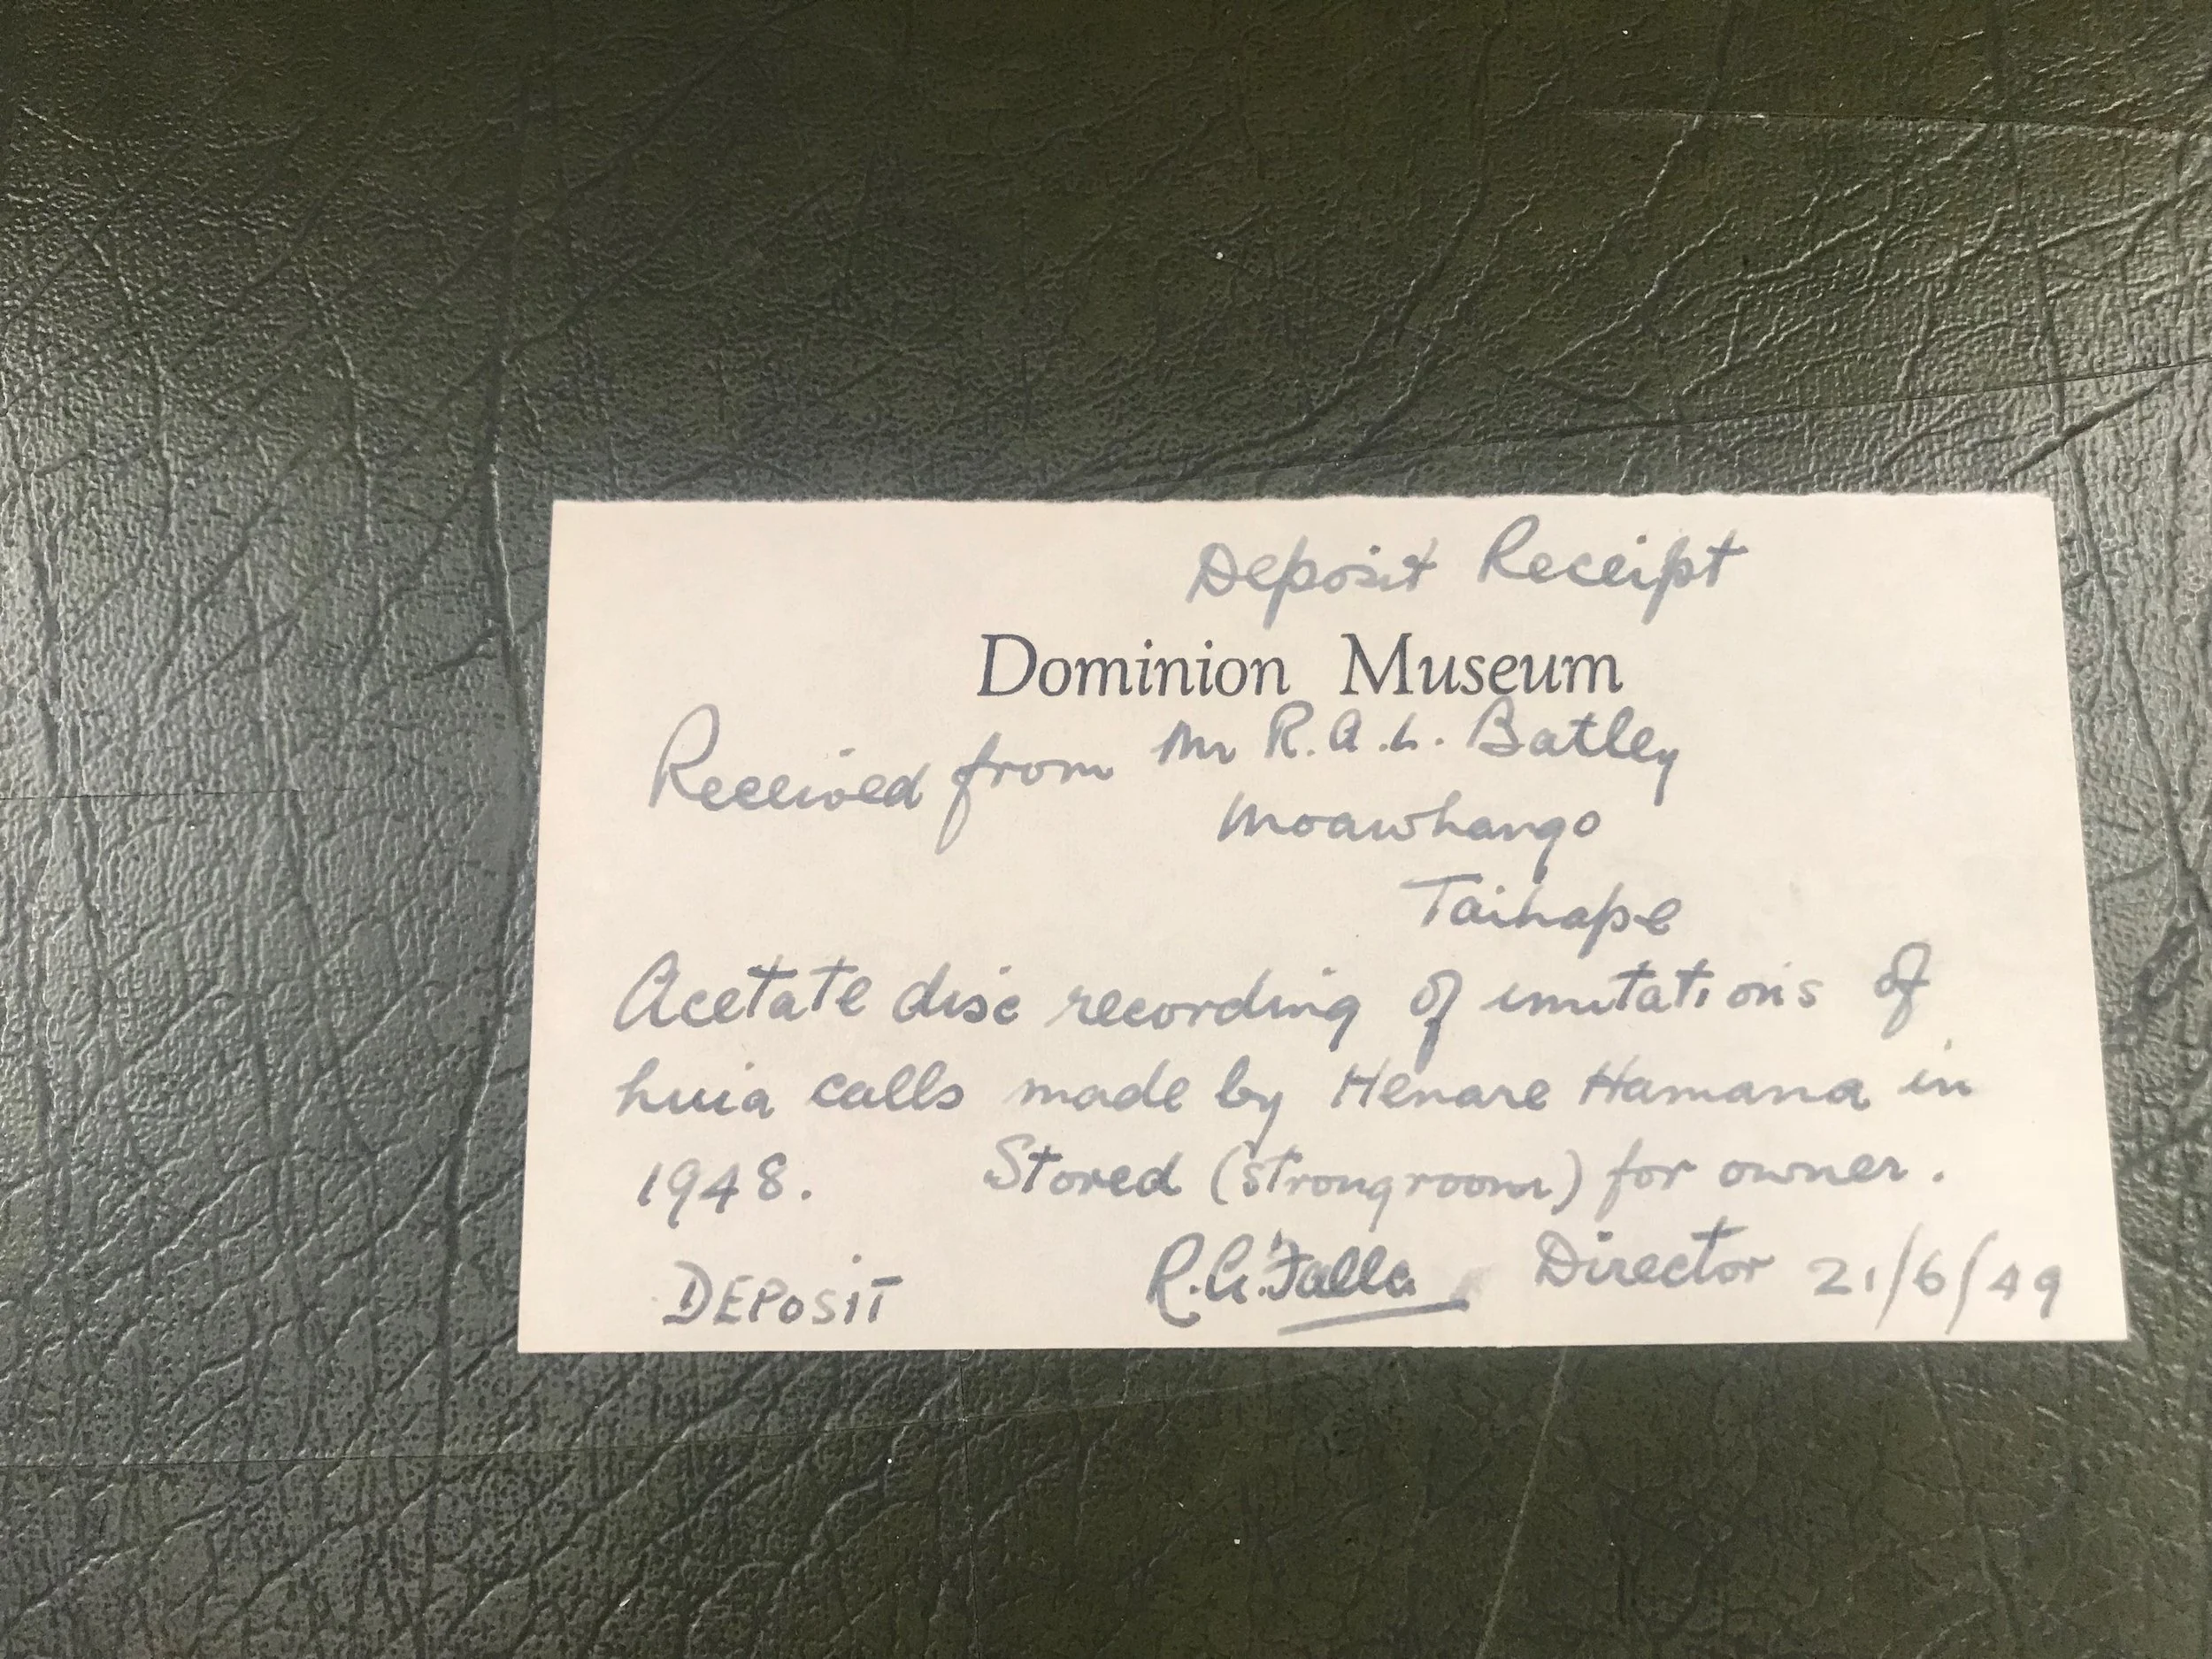 Deposit Receipt
Dominion Museum
Received from Mr R.A.L. Batley
Moawhango
Taihape
Acetate disc recording of imitations of
huia calls made by Henare Hamana in
1948. Stored (strongroom) for owner.
DEPOSIT R.A. Falla Director 21/6/49